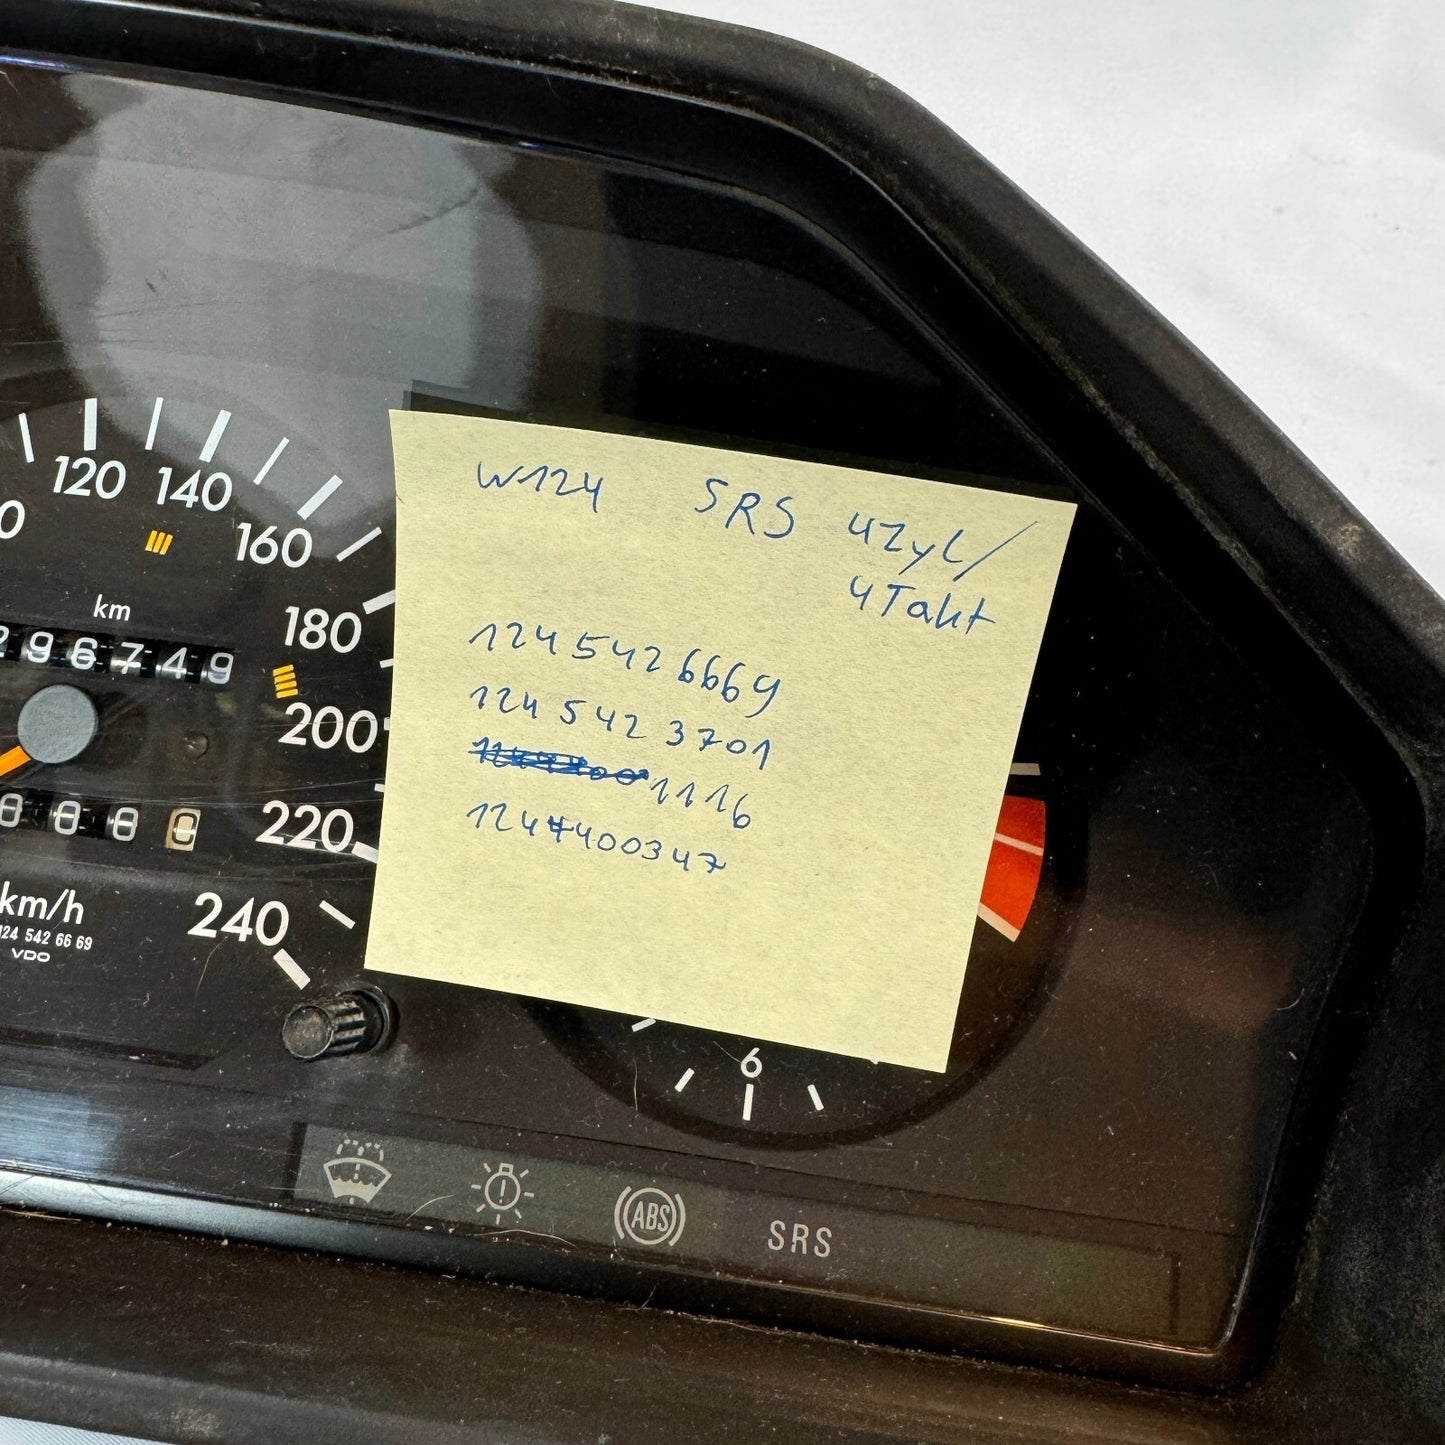 120 140
160
km
180
96749
200
220
km/h
124 542 66 69
VDO
240
W124 SRS 4Zyl/
4Takt
124 542 6669
124 542 3701
1116
6
ABS
SRS